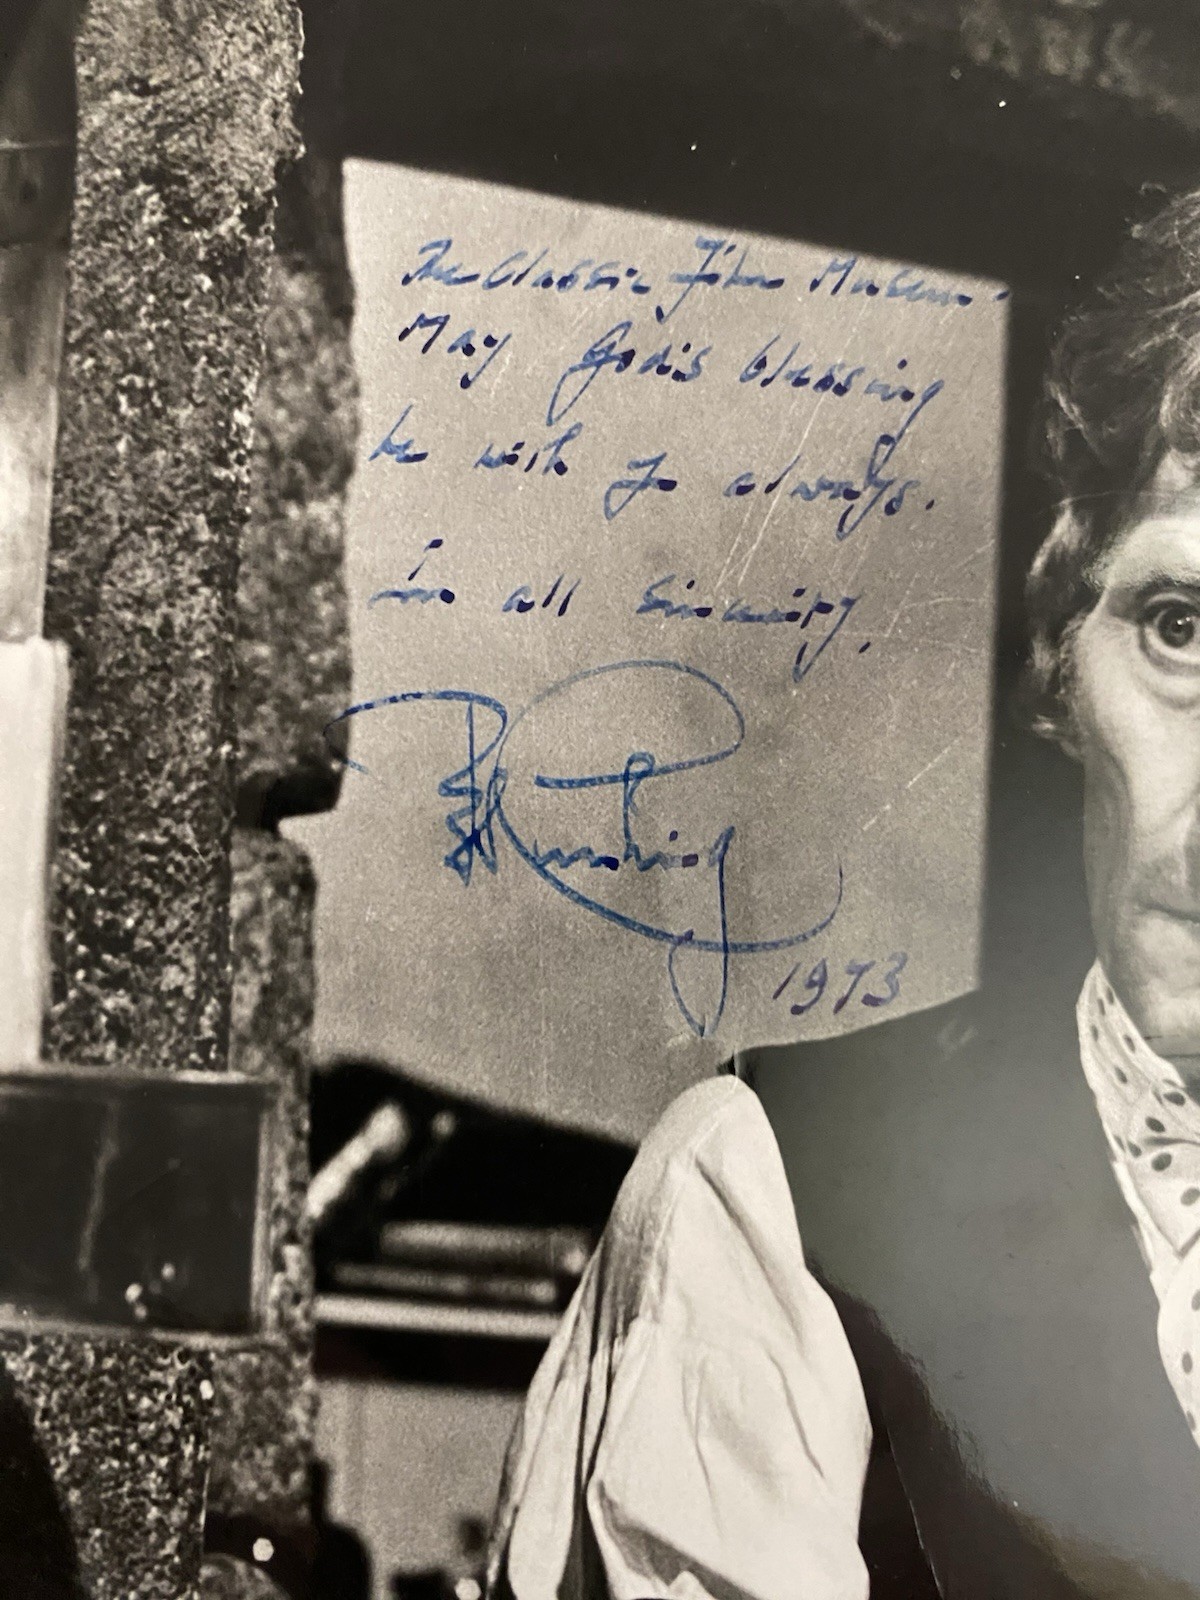 The Classic Film Museum.
May God's blessing
be with yo always.
In all sincerity,
Peter Cushing
1973